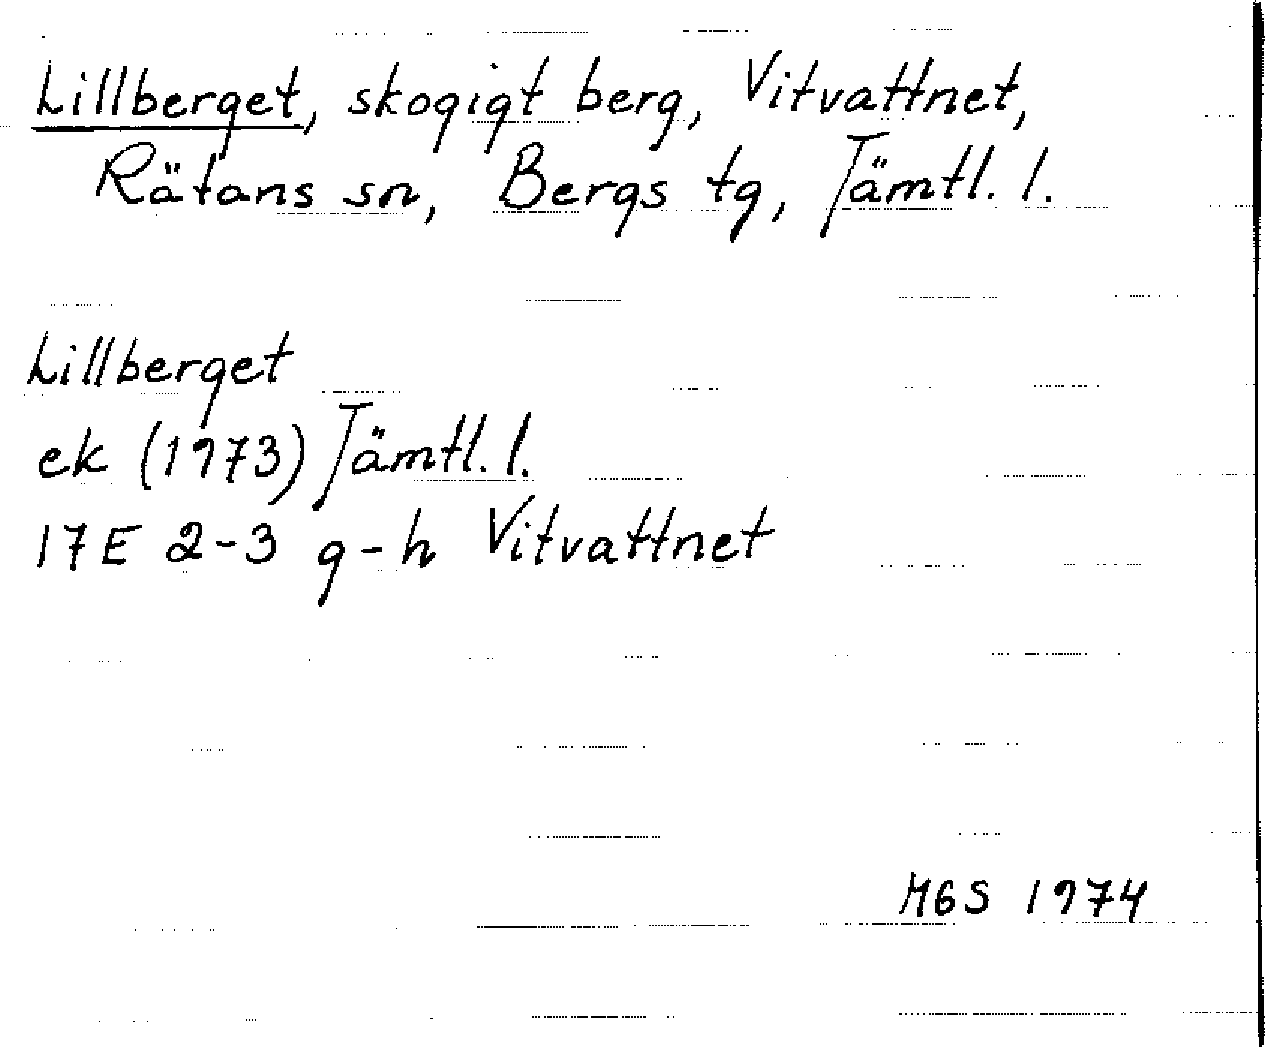 Lillberget, skogigt berg, Vitvattnet,
Rätans sn, Bergs tg, Jämtl. l.
Lillberget
ek (1973) Jämtl. l.
17E 2-3 g-h Vitvattnet
MGS 1974